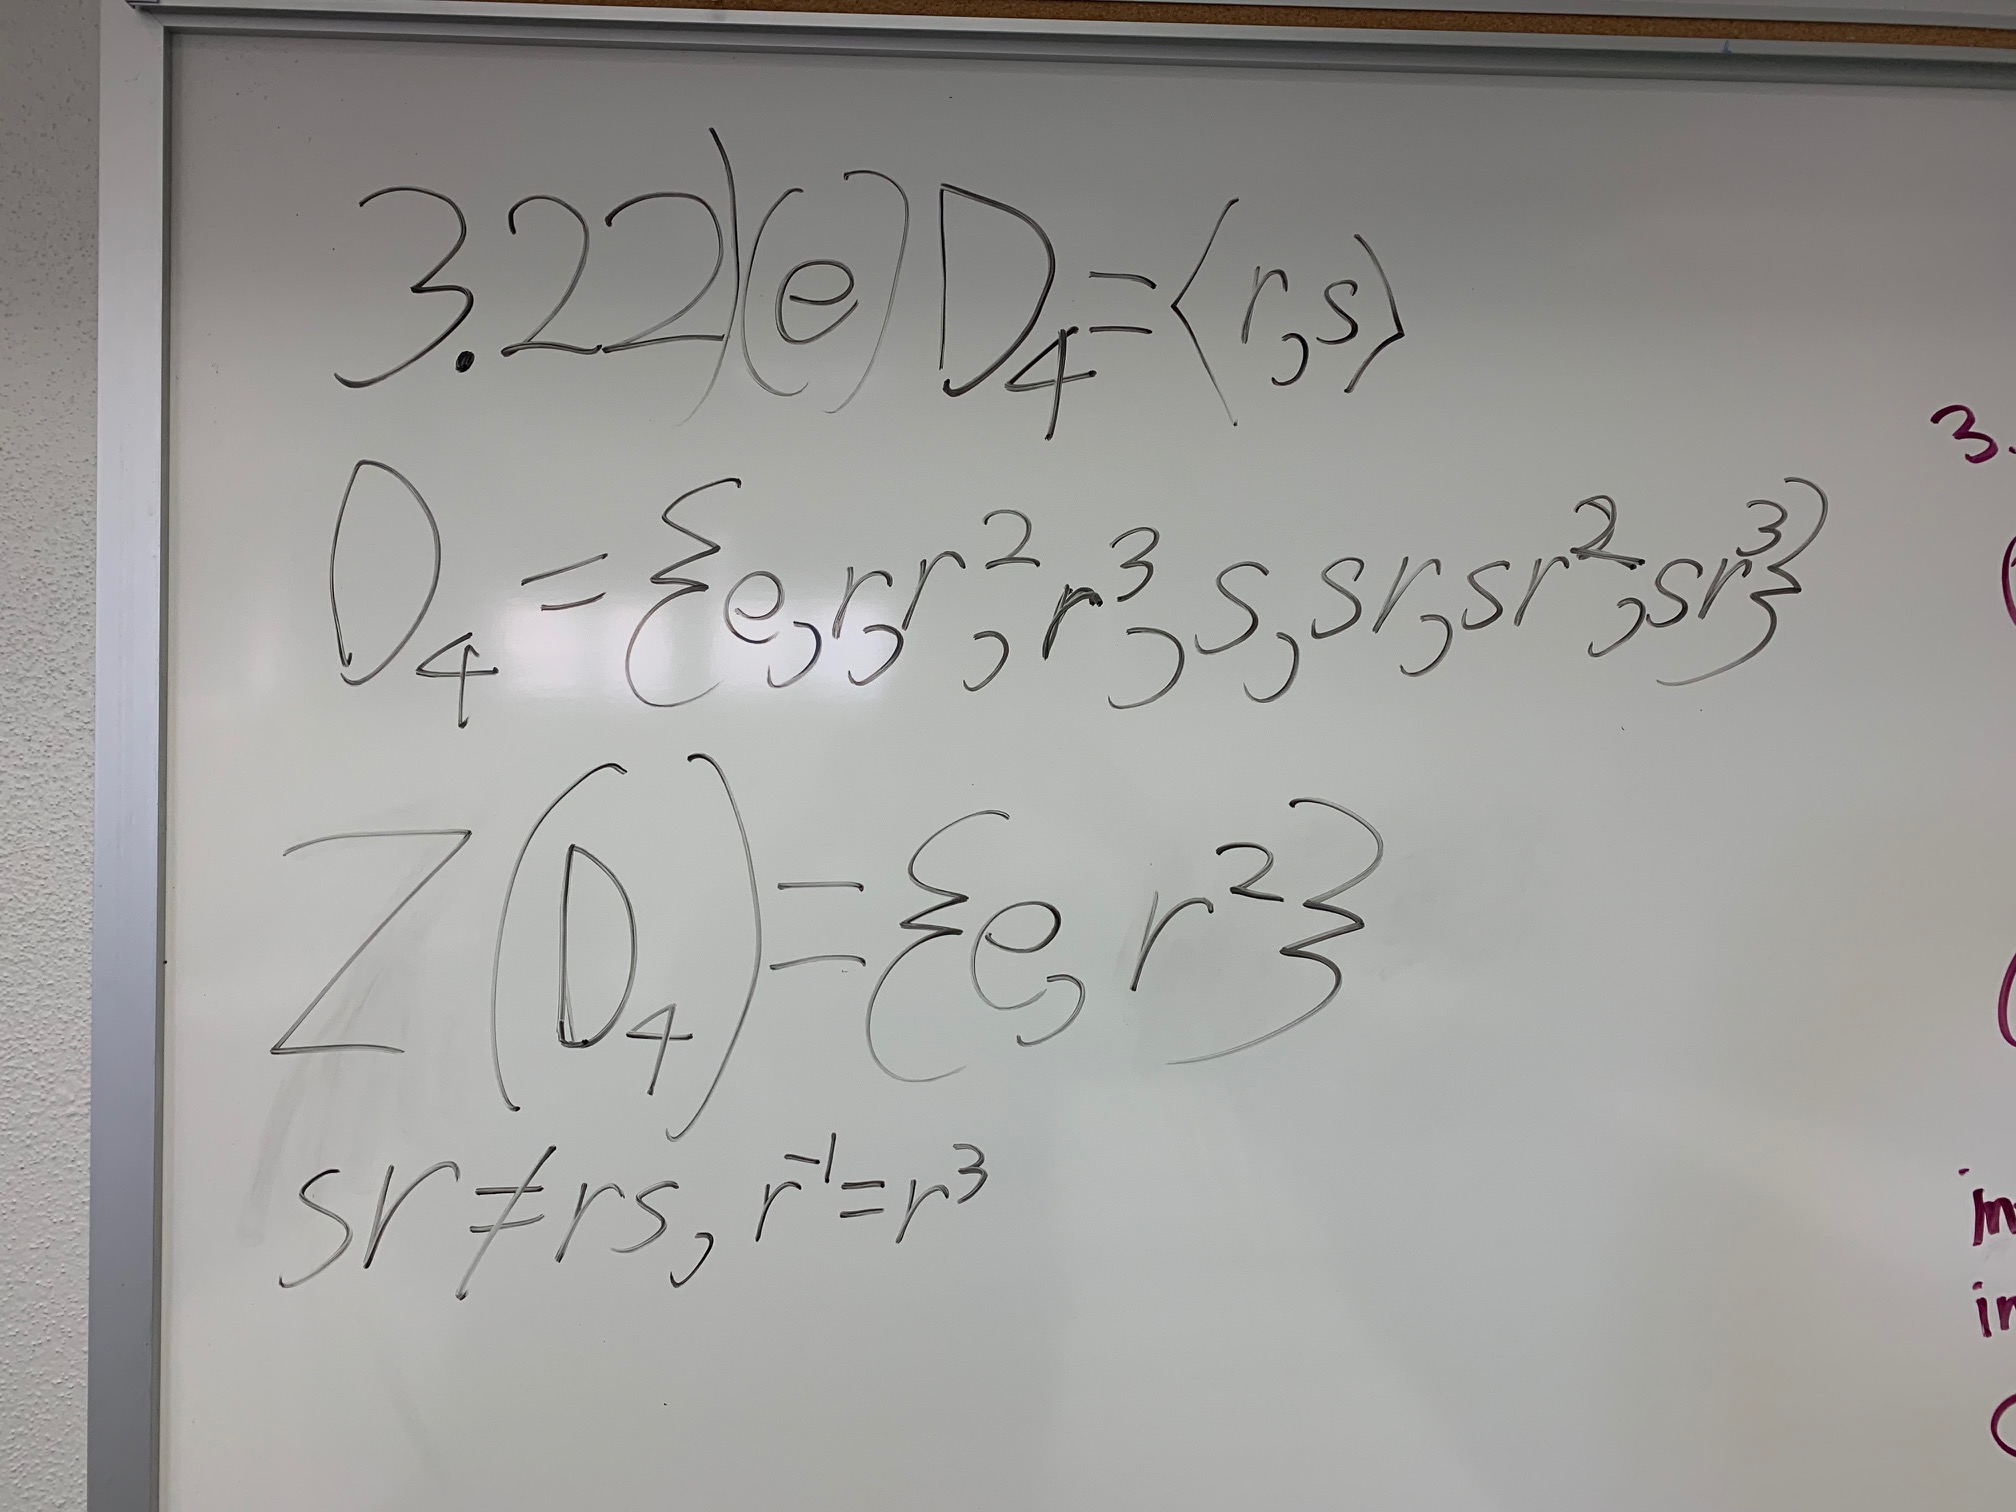 3.22) (e) D₄ = ⟨r,s⟩
D₄ = {e, r, r², r³, s, sr, sr², sr³}
Z(D₄) = {e, r²}
sr ≠ rs, r⁻¹ = r³
3.
(
(
in